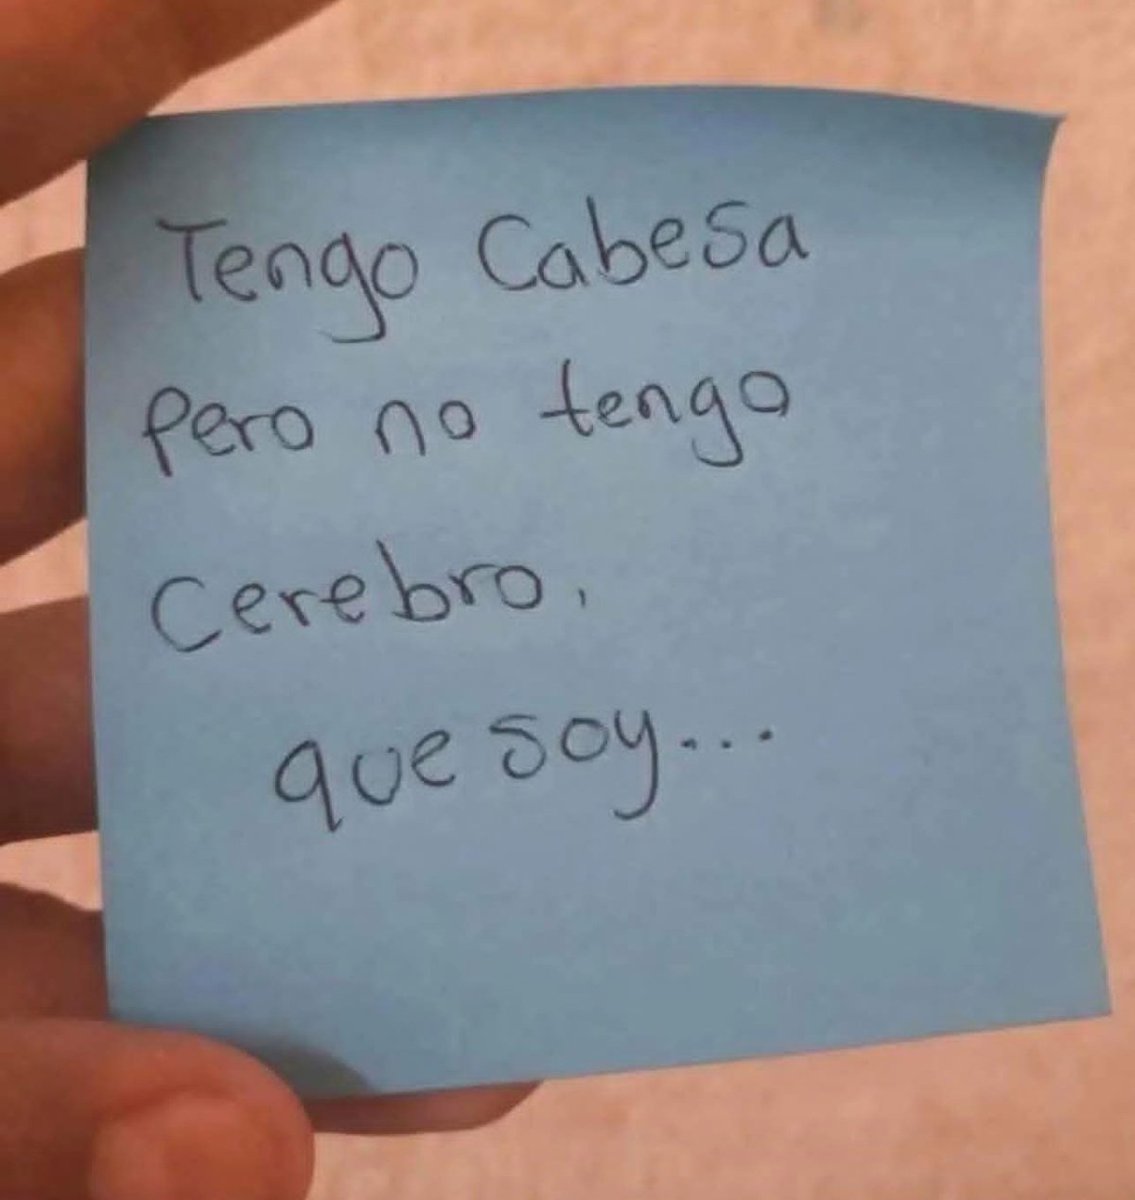 Tengo Cabesa
Pero no tengo
Cerebro.
que soy...